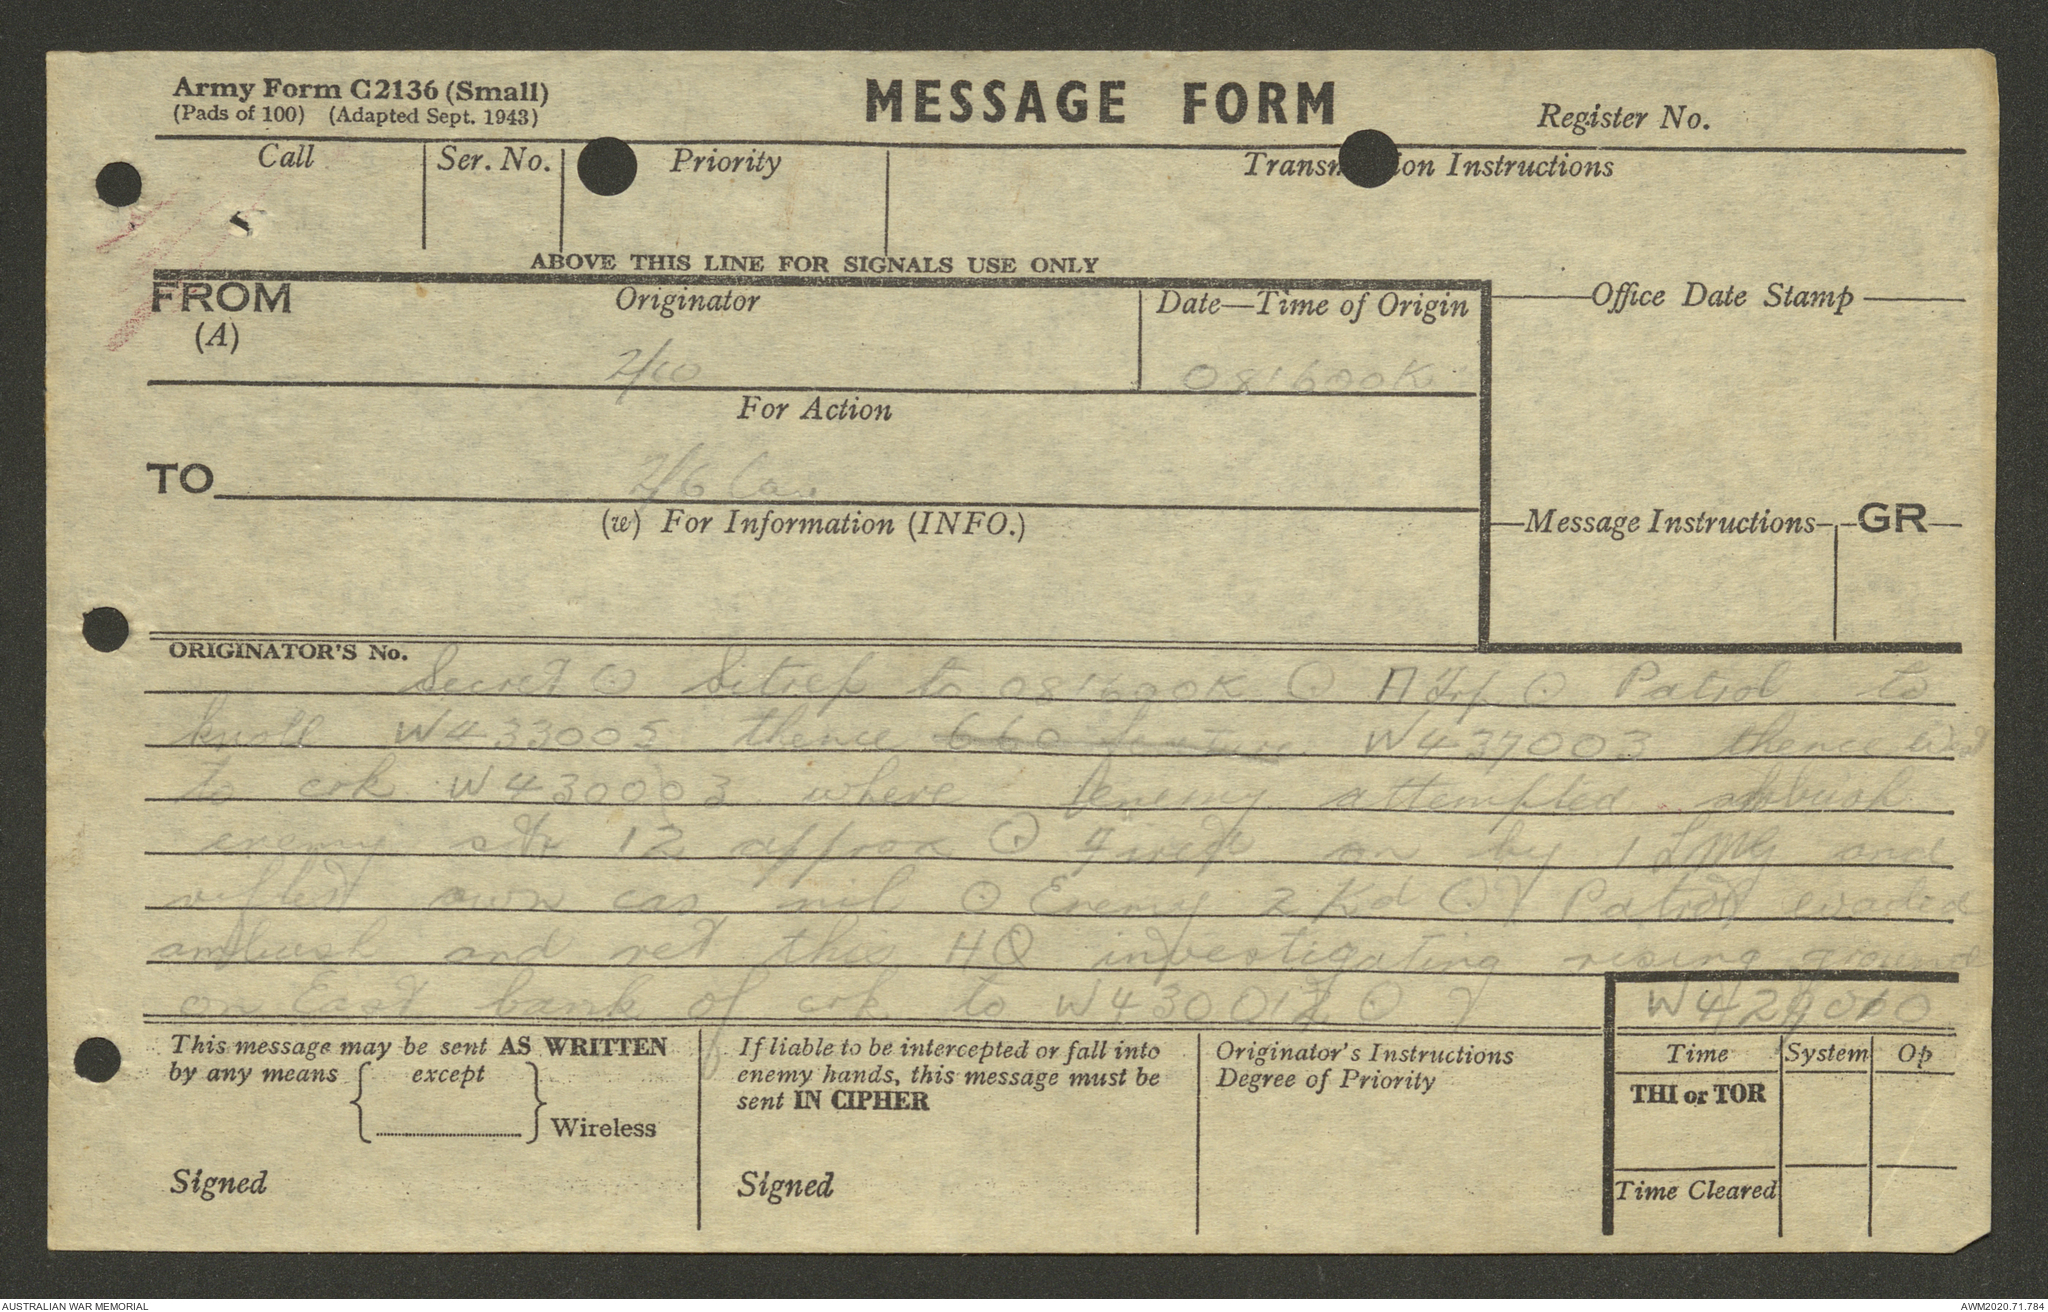 Army Form C2136 (Small)
(Pads of 100) (Adapted Sept. 1943)
MESSAGE FORM
Register No.
Call Ser. No. Priority Transm ion Instructions
ABOVE THIS LINE FOR SIGNALS USE ONLY
FROM (A) Originator Date—Time of Origin Office Date Stamp
2/10 081600K
For Action
TO 2/6
(w) For Information (INFO.)
Message Instructions GR
ORIGINATOR'S No.
Secret ⊙ Sitrep to 081600K ⊙ Patrol to
knoll W433005 thence 660 feature W437003 thence West
to crk W430003 where enemy attempted ambush
enemy str 12 approx ⊙ on by 1 LMG and
own cas nil ⊙ Enemy 2 Kd ⊙ Patrol evaded
ambush and ret this HQ investigating rising ground
on East bank of crk to
This message may be sent AS WRITTEN
by any means { except } Wireless
Signed
If liable to be intercepted or fall into
enemy hands, this message must be
sent IN CIPHER
Signed
Originator's Instructions
Degree of Priority
Time System Op
THI or TOR
Time Cleared
AUSTRALIAN WAR MEMORIAL
AWM2020.71.784